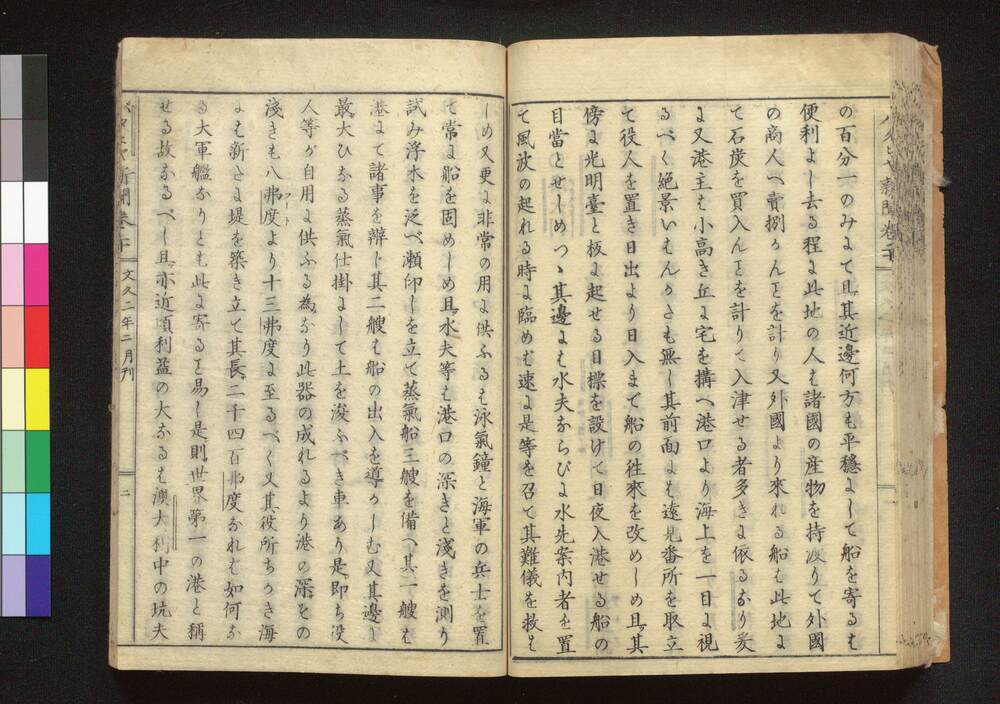 の百分一のみよて且其近邊何方も平穏よして船を寄るも
便利よし去る程よ此地の人も諸國の産物を持渡りて外國
の商人へ賣捌かんとを計り又外國より來れる船も此地よ
て石炭を買入んとを計りて入津せる者多きよ依るなり爰
よ又港主も小高き丘よ宅を搆へ港口より海上を一目よ視
るべく絶景いもんかたも無し其前面よも遠見番所を取立
て役人を置き日出より日入まて船の徃來を改めしめ且其
傍よ光明臺と板よ起せる目標を設けて日夜入港せる船の
目當とせしめつゝ其邊よも水夫ならびよ水先案内者を置
て風波の起れる時よ臨めむ速よ是等を召て其難儀を救も
しめ又更よ非常の用よ供ふるも泳氣鐘と海軍の兵士を置
て常よ船を固めしめ且水夫等も港口の深きと淺きを測り
試み浮木を泛べ瀬印しを立て蒸氣船三艘を備へ其一艘も
港よて諸事を辨じ其二艘も船の出入を導かしむ又其邊よ
最大ひなる蒸氣仕掛よして土を浚ふべき車あり是即ち役
人等が自用よ供ふる為なり此器の成れるより港の深その
淺きも八弗度より十三弗度よ至るべく又其役所ちかき海
フート
よも新たよ堤を築き立て其長二千四百弗度なれむ如何な
る大軍艦なりとも此よ寄ると易し是則世界第一の港と稱
せる故なるべし且亦近頃利益の大なるも澳大利中の坑夫
新聞巻廿
文久二年二月刊
二